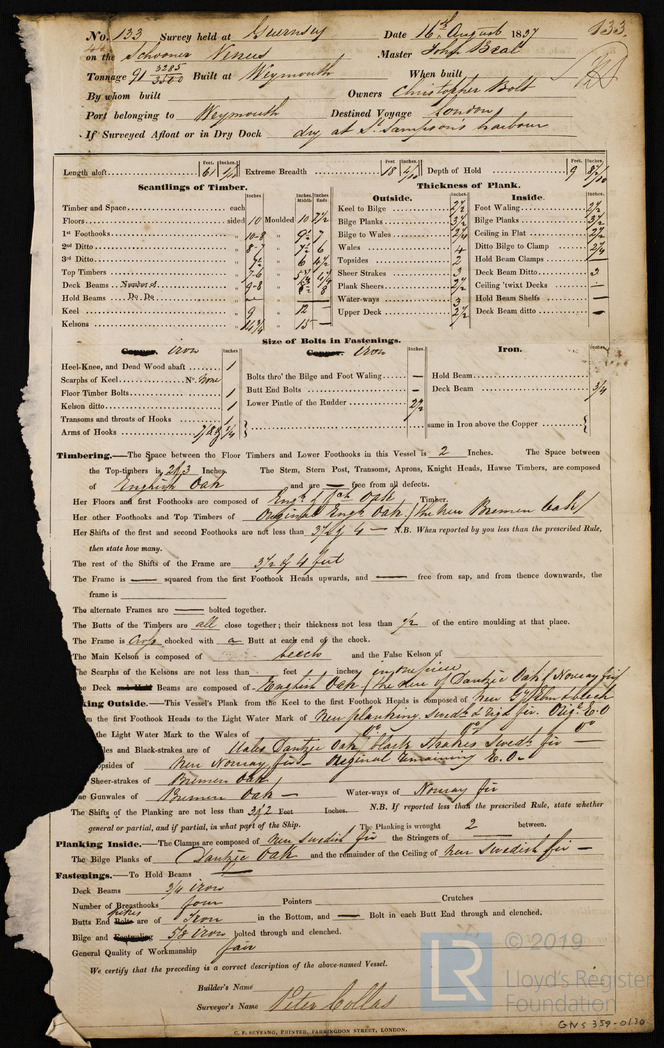 No. 133 Survey held at Guernsey Date 16th August 1837 133.
on the Schooner Venus Master John Beal
Tonnage 91 3285/3500 Built at Weymouth When built
By whom built Owners Christopher Bolt
Port belonging to Weymouth Destined Voyage London
If Surveyed Afloat or in Dry Dock dry at St. Sampsons harbour
Length aloft Feet. 61 Inches. Extreme Breadth Feet. 18 Inches. Depth of Hold Feet. 9 Inches.
Scantlings of Timber. Thickness of Plank.
Outside. Inside.
Timber and Space each Inches. Inches. Middle Inches. Ends
Floors sided 10 Moulded 10 7½
1st Foothooks " 10-8 " 9½ 7
2nd Ditto " 8-7 " 7½ 6
3rd Ditto " 7½ " 6 4½
Top Timbers " 7-6 "
Deck Beams Number of " 9-8 "
Hold Beams Do Do " — "
Keel " 9 " 12 —
Kelsons " " 15 —
Keel to Bilge 2½
Bilge Planks 3½
Bilge to Wales 2¼
Wales 4
Topsides 2
Sheer Strakes 3
Plank Sheers 2½
Water-ways 3
Upper Deck 2½
Foot Waling 2½
Bilge Planks 3½
Ceiling in Flat 2½
Ditto Bilge to Clamp 2¼
Hold Beam Clamps —
Deck Beam Ditto 3
Ceiling 'twixt Decks
Hold Beam Shelfs —
Deck Beam ditto —
Size of Bolts in Fastenings.
Copper. iron Inches Copper. iron Inches Iron. Inches.
Heel-Knee, and Dead Wood abaft 1
Scarphs of Keel No. None
Floor Timber Bolts 1
Kelson ditto 1
Transoms and throats of Hooks
Arms of Hooks 7/8 & 3/4
Bolts thro' the Bilge and Foot Waling —
Butt End Bolts —
Lower Pintle of the Rudder 2½
Hold Beam —
Deck Beam ¾
same in Iron above the Copper
Timbering.—The Space between the Floor Timbers and Lower Foothooks in this Vessel is 2 Inches. The Space between
the Top-timbers is 2 & 3 Inches. The Stem, Stern Post, Transoms, Aprons, Knight Heads, Hawse Timbers, are composed
of English Oak and are — free from all defects.
Her Floors and first Foothooks are composed of Oak Timber.
Her other Foothooks and Top Timbers of Original Engh Oak / the New Bremen Oak /
Her Shifts of the first and second Foothooks are not less than 3½ & 4 — N.B. When reported by you less than the prescribed Rule,
then state how many.
The rest of the Shifts of the Frame are 3½ & 4 feet
The Frame is — squared from the first Foothook Heads upwards, and — free from sap, and from thence downwards, the
frame is
The alternate Frames are — bolted together.
The Butts of the Timbers are all close together; their thickness not less than ½ of the entire moulding at that place.
The Frame is chocked with a Butt at each end of the chock.
The Main Kelson is composed of beech and the False Kelson of
The Scarphs of the Kelsons are not less than feet inches in one piece
The Deck and Hold Beams are composed of English Oak / the New of Dantzic Oak & Norway fir
king Outside.—This Vessel's Plank from the Keel to the first Foothook Heads is composed of New Elm & beech
m the first Foothook Heads to the Light Water Mark of New planking Swedh & Riga fir. Orig. E.O
the Light Water Mark to the Wales of do do do
les and Black-strakes are of Wales Dantzic Oak, black Strakes Swedh fir
opsides of New Norway fir — Original Remaining E.O.
Sheer-strakes of Bremen Oak
e Gunwales of Bremen Oak — Water-ways of Norway fir
The Shifts of the Planking are not less than 3½ Feet Inches. N.B. If reported less than the prescribed Rule, state whether
general or partial, and if partial, in what part of the Ship. The Planking is wrought 2 between.
Planking Inside.—The Clamps are composed of New Swedish fir the Stringers of
The Bilge Planks of Dantzic Oak and the remainder of the Ceiling of New Swedish fir —
Fastenings.—To Hold Beams —
Deck Beams ¾ iron
Number of Breasthooks four Pointers Crutches
Butts End Bolts spikes are of Iron in the Bottom, and — Bolt in each Butt End through and clenched.
Bilge and Footwaling 5/8 iron bolted through and clenched.
General Quality of Workmanship fair
We certify that the preceding is a correct description of the above-named Vessel.
Builder's Name
Surveyor's Name Peter Collas
C. F. SEYFANG, PRINTER, FARRINGDON STREET, LONDON.
LR
© 2019
Lloyd's Register
Foundation
GNS 359-0130